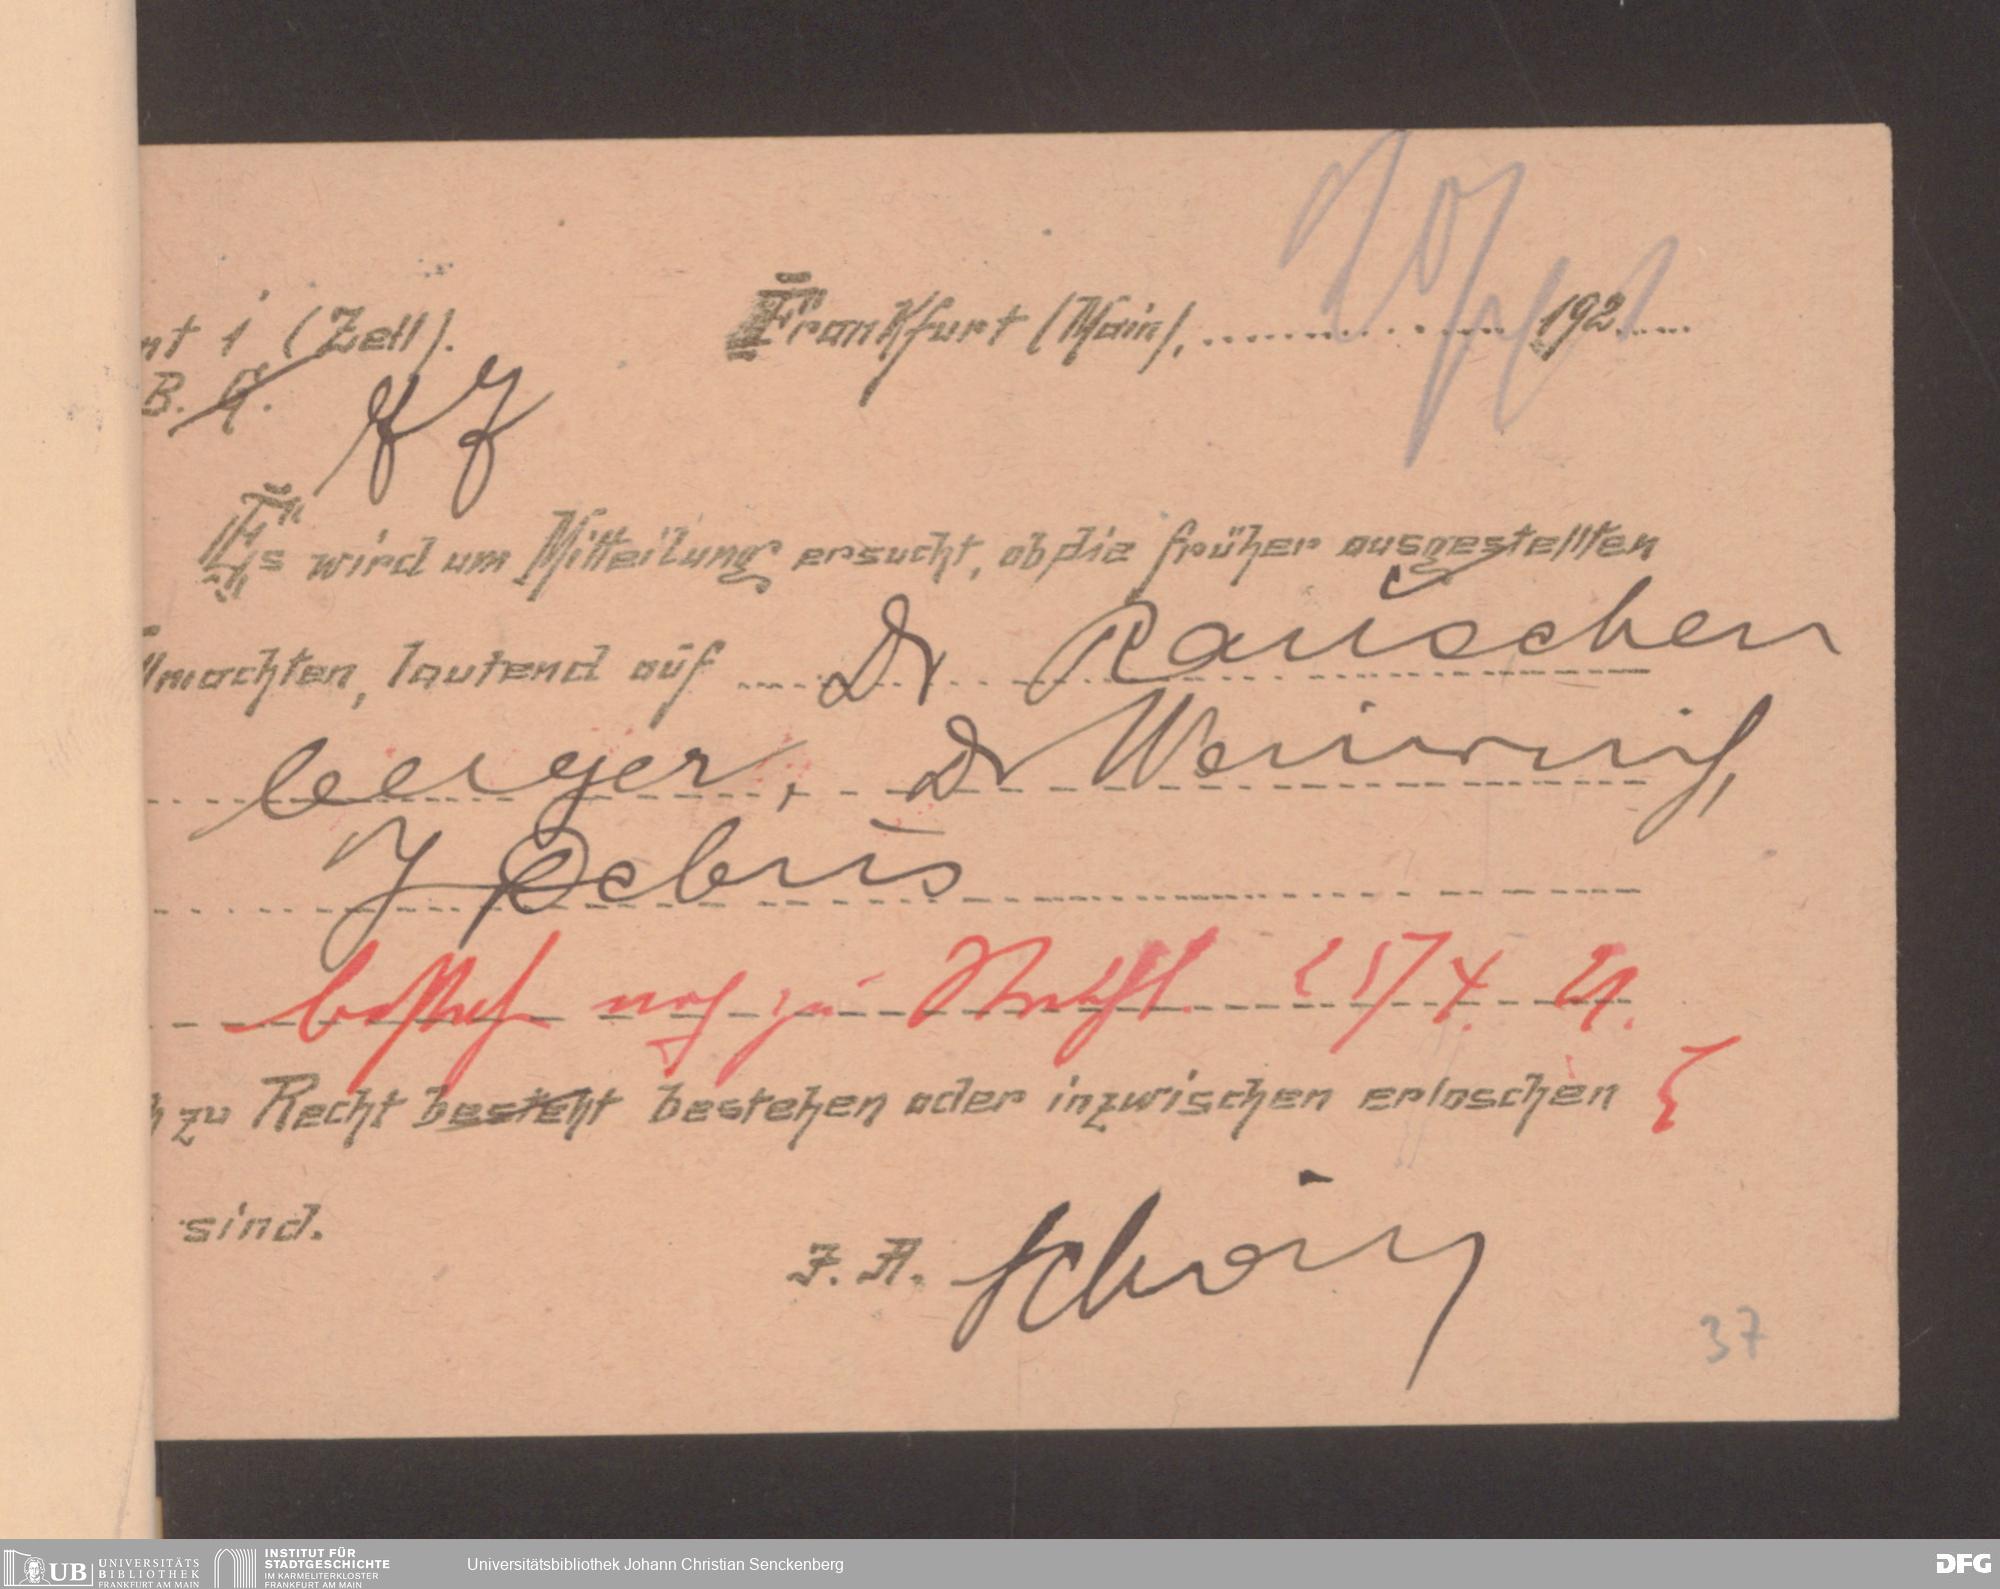 nt 1 (Zell). Frankfurt (Main), 20/4 192
B. A.
Es wird um Mitteilung ersucht, ob die früher ausgestellten
llmachten, lautend auf Dr Rauschen
berger, Dr
bestehen noch zu Recht. 25/4. 21.
h zu Recht besteht bestehen oder inzwischen erloschen
sind.
J. A.
37
UB UNIVERSITÄTS
BIBLIOTHEK
FRANKFURT AM MAIN
INSTITUT FÜR
STADTGESCHICHTE
IM KARMELITERKLOSTER
FRANKFURT AM MAIN
Universitätsbibliothek Johann Christian Senckenberg
DFG